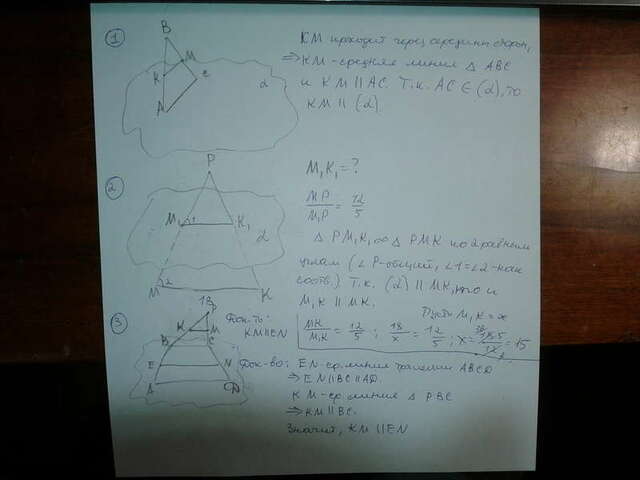 1
B
M
K
C
A
α
KM проходит через середины сторон,
⇒ KM - средняя линия Δ ABC
и KM || AC. Т.к. AC ∈ (α), то
KM || (α).
2
P
M₁
1
K₁
α
M
2
K
M₁K₁ = ?
MP/M₁P = 12/5
Δ PM₁K₁ ∞ Δ PMK по 2 равным
углам (∠ P-общий, ∠1=∠2-как
соотв.) Т.к. (α) || MK, то и
M₁K || MK.
Пусть M₁K = x
MK/M₁K = 12/5 ; 18/x = 12/5 ; x = = 15
3
P
K
M
B
C
E
N
A
D
Док-ть:
KM || EN
Док-во: EN-ср. линия трапеции ABCD
⇒ EN || BC || AD.
KM-ср линия Δ PBC
⇒ KM || BC.
Значит, KM || EN